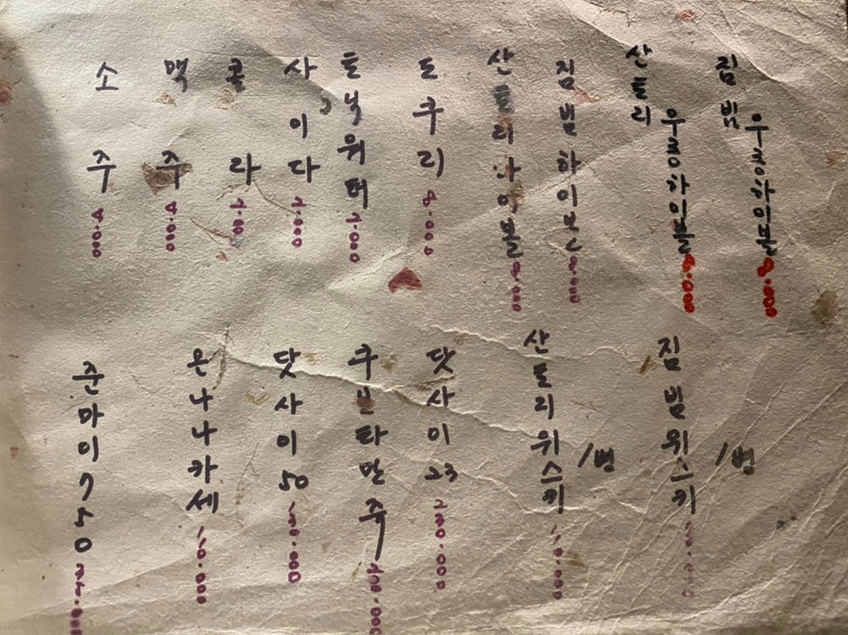 소주 4.000
맥주 4.000
콜라 2.000
사이다 2.000
토닉워터 2.000
도쿠리 8.000
산토리하이볼 8.000
짐빔하이볼 8.000
산토리
우롱하이볼
짐빔
우롱하이볼
준마이750
온나나카세 110.000
닷사이50 130.000
쿠보타만쥬 200.000
닷사이23 230.000
산토리위스키
/병
짐빔위스키
/병